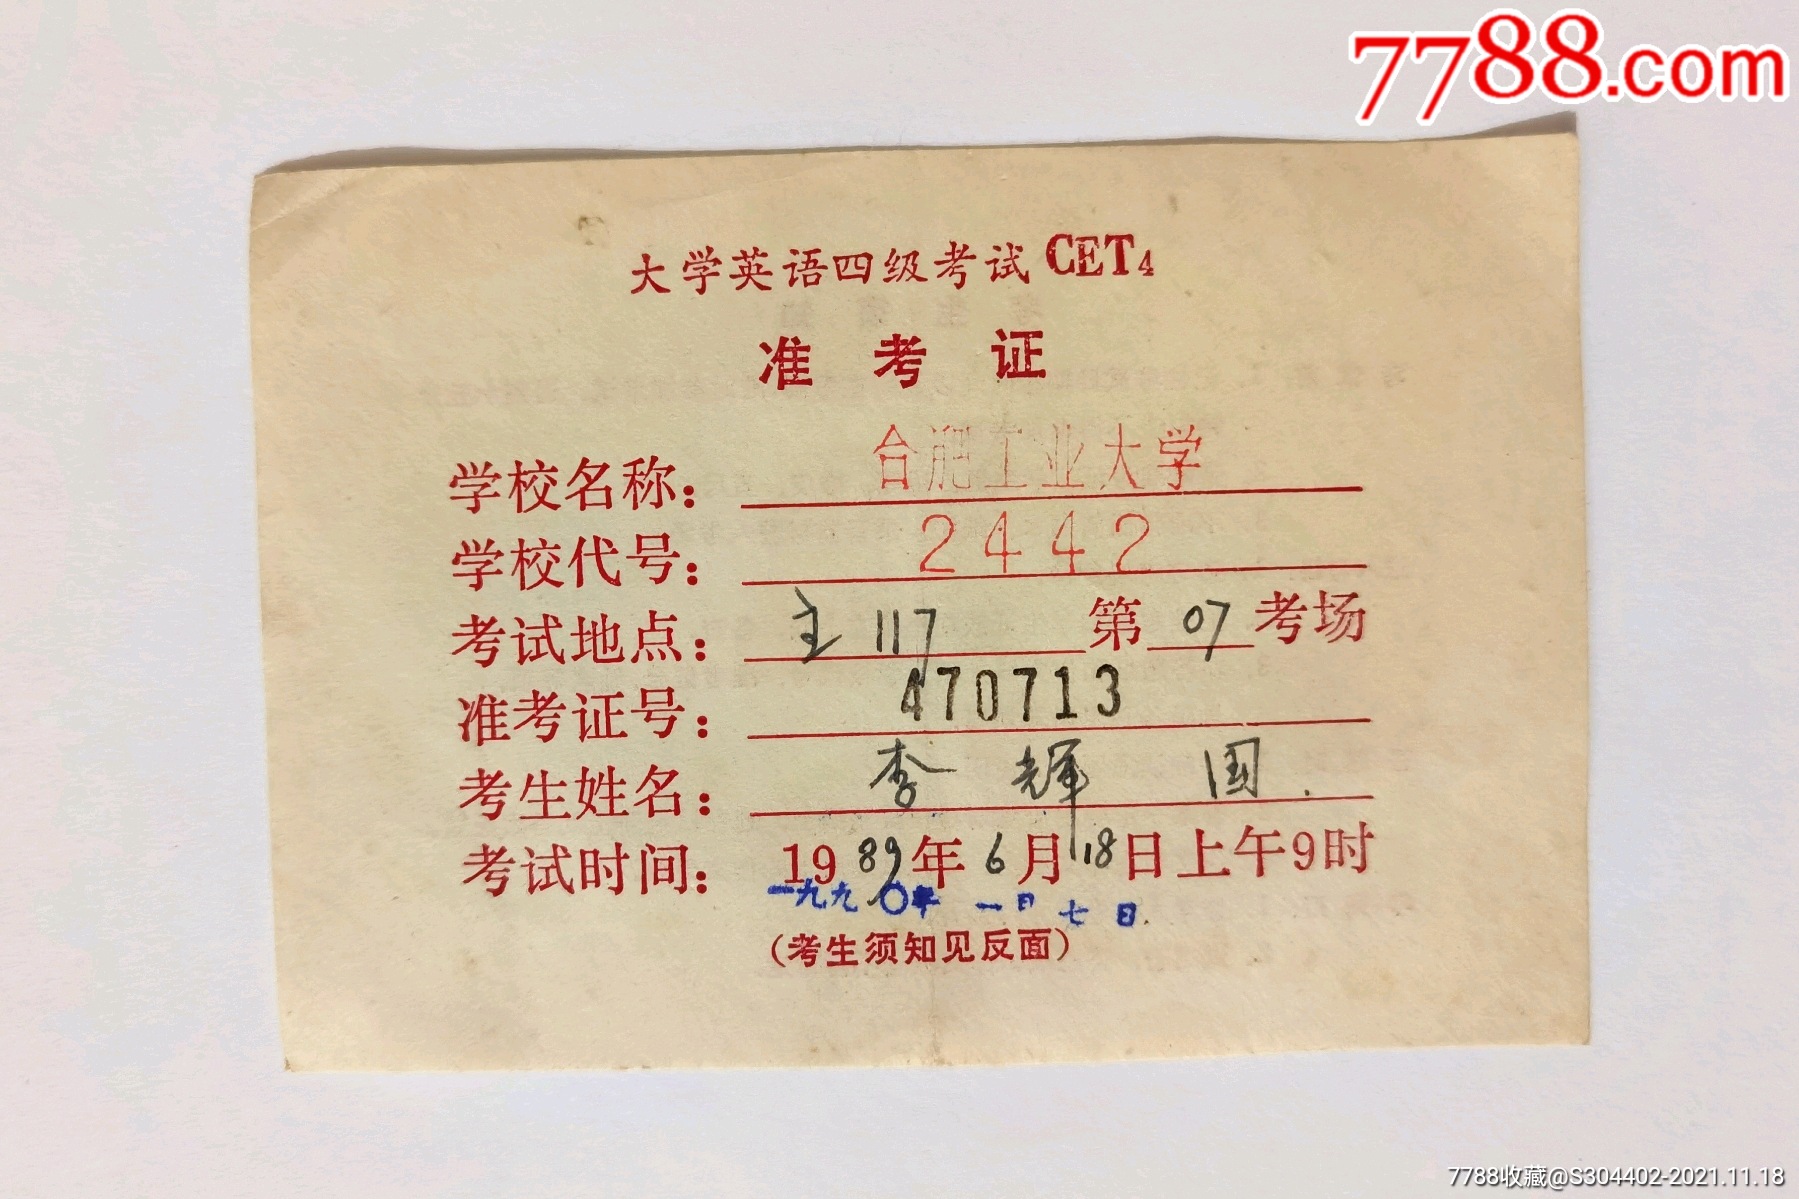 7788.com
大学英语四级考试CET4
准考证
学校名称：合肥工业大学
学校代号：2442
考试地点：主117 第07考场
准考证号：470713
考生姓名：李辉国
考试时间：1989年6月18日上午9时
一九九〇年一月七日
（考生须知见反面）
7788收藏@S304402-2021.11.18